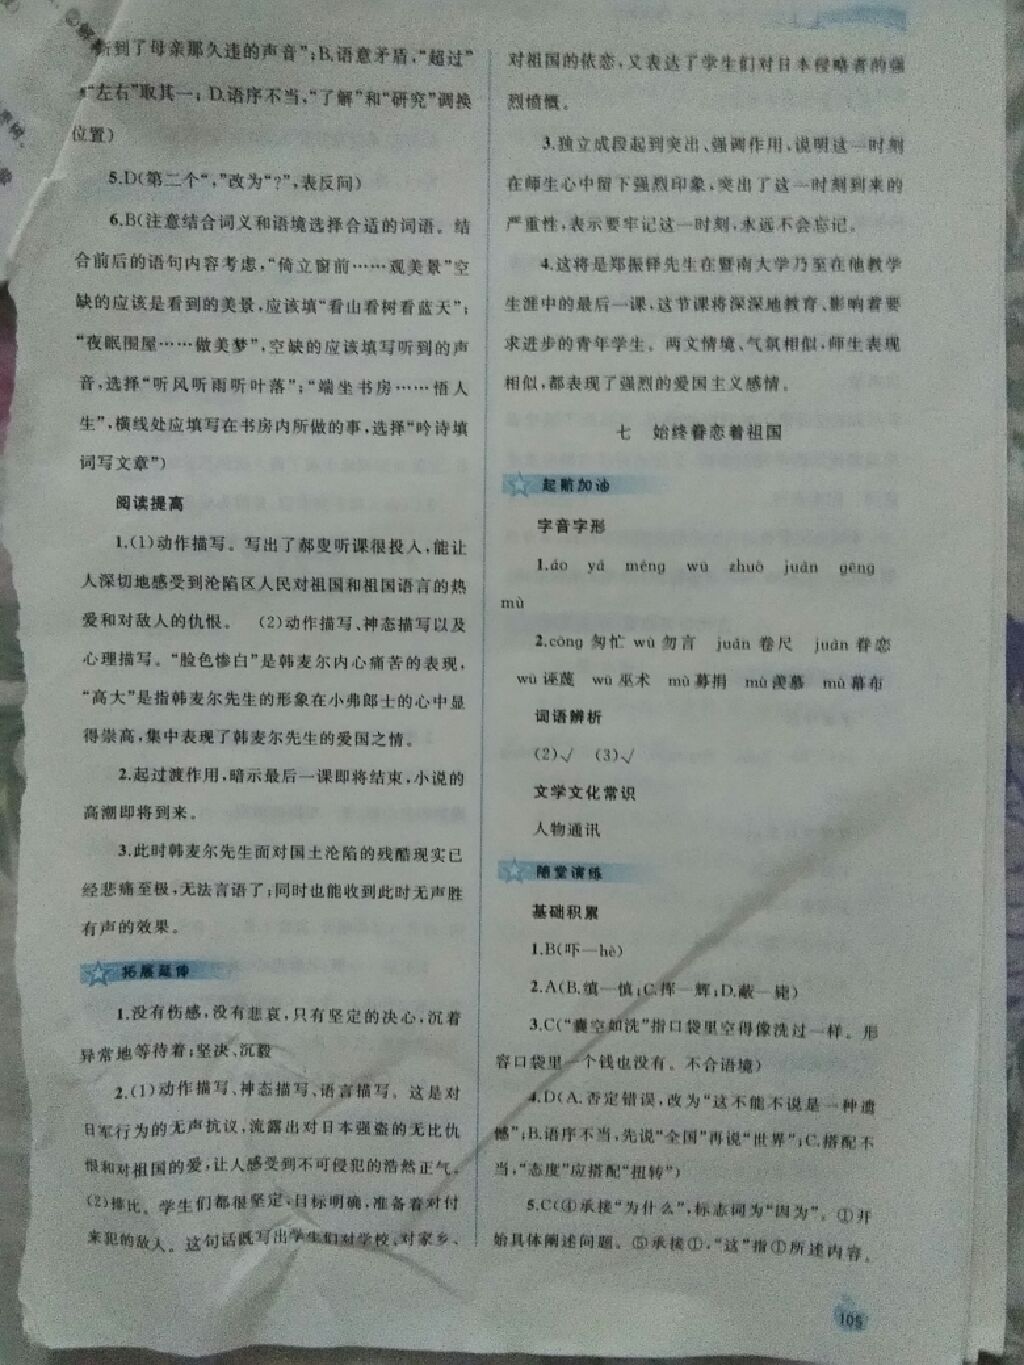 听到了母亲那久违的声音”;B.语意矛盾,“超过”
“左右”取其一;D.语序不当,“了解”和“研究”调换
位置)
5.D(第二个“,”改为“?”,表反问)
6.B(注意结合词义和语境选择合适的词语。结
合前后的语句内容考虑,“倚立窗前……观美景”空
缺的应该是看到的美景,应该填“看山看树看蓝天”;
“夜眠围屋……做美梦”,空缺的应该填写听到的声
音,选择“听风听雨听叶落”;“端坐书房……悟人
生”,横线处应填写在书房内所做的事,选择“吟诗填
词写文章”)
阅读提高
1.(1)动作描写。写出了郝叟听课很投入,能让
人深切地感受到沦陷区人民对祖国和祖国语言的热
爱和对敌人的仇恨。 (2)动作描写、神态描写以及
心理描写。“脸色惨白”是韩麦尔内心痛苦的表现,
“高大”是指韩麦尔先生的形象在小弗郎士的心中显
得崇高,集中表现了韩麦尔先生的爱国之情。
2.起过渡作用,暗示最后一课即将结束,小说的
高潮即将到来。
3.此时韩麦尔先生面对国土沦陷的残酷现实已
经悲痛至极,无法言语了;同时也能收到此时无声胜
有声的效果。
拓展延伸
1.没有伤感,没有悲哀,只有坚定的决心,沉着
异常地等待着;坚决、沉毅
2.(1)动作描写、神态描写、语言描写。这是对
日军行为的无声抗议,流露出对日本强盗的无比仇
恨和对祖国的爱,让人感受到不可侵犯的浩然正气。
(2)排比。学生们都很坚定,目标明确,准备着对付
来犯的敌人。这句话既写出学生们对学校、对家乡、
对祖国的依恋,又表达了学生们对日本侵略者的强
烈愤慨。
3.独立成段起到突出、强调作用,说明这一时刻
在师生心中留下强烈印象,突出了这一时刻到来的
严重性,表示要牢记这一时刻,永远不会忘记。
4.这将是郑振铎先生在暨南大学乃至在他教学
生涯中的最后一课,这节课将深深地教育、影响着要
求进步的青年学生。两文情境、气氛相似,师生表现
相似,都表现了强烈的爱国主义感情。
七 始终眷恋着祖国
起航加油
字音字形
1.áo yá méng wū zhuō juàn gēng
mù
2.cōng 匆忙 wù 勿言 juǎn 卷尺 juàn 眷恋
wū 诬蔑 wū 巫术 mù 募捐 mù 羡慕 mù 幕布
词语辨析
(2)√ (3)√
文学文化常识
人物通讯
随堂演练
基础积累
1.B(吓—hè)
2.A(B.缜—慎;C.挥—辉;D.蔽—
3.C(“囊空如洗”指口袋里空得像洗过一样。形
容口袋里一个钱也没有。不合语境)
4.D(A.否定错误,改为“这不能不说是一种遗
憾”;B.语序不当,先说“全国”再说“世界”;C.搭配不
当,“态度”应搭配“扭转”)
5.C(④承接“为什么”,标志词为“因为”。①开
始具体阐述问题。⑤承接①,“这”指①所述内容。
105